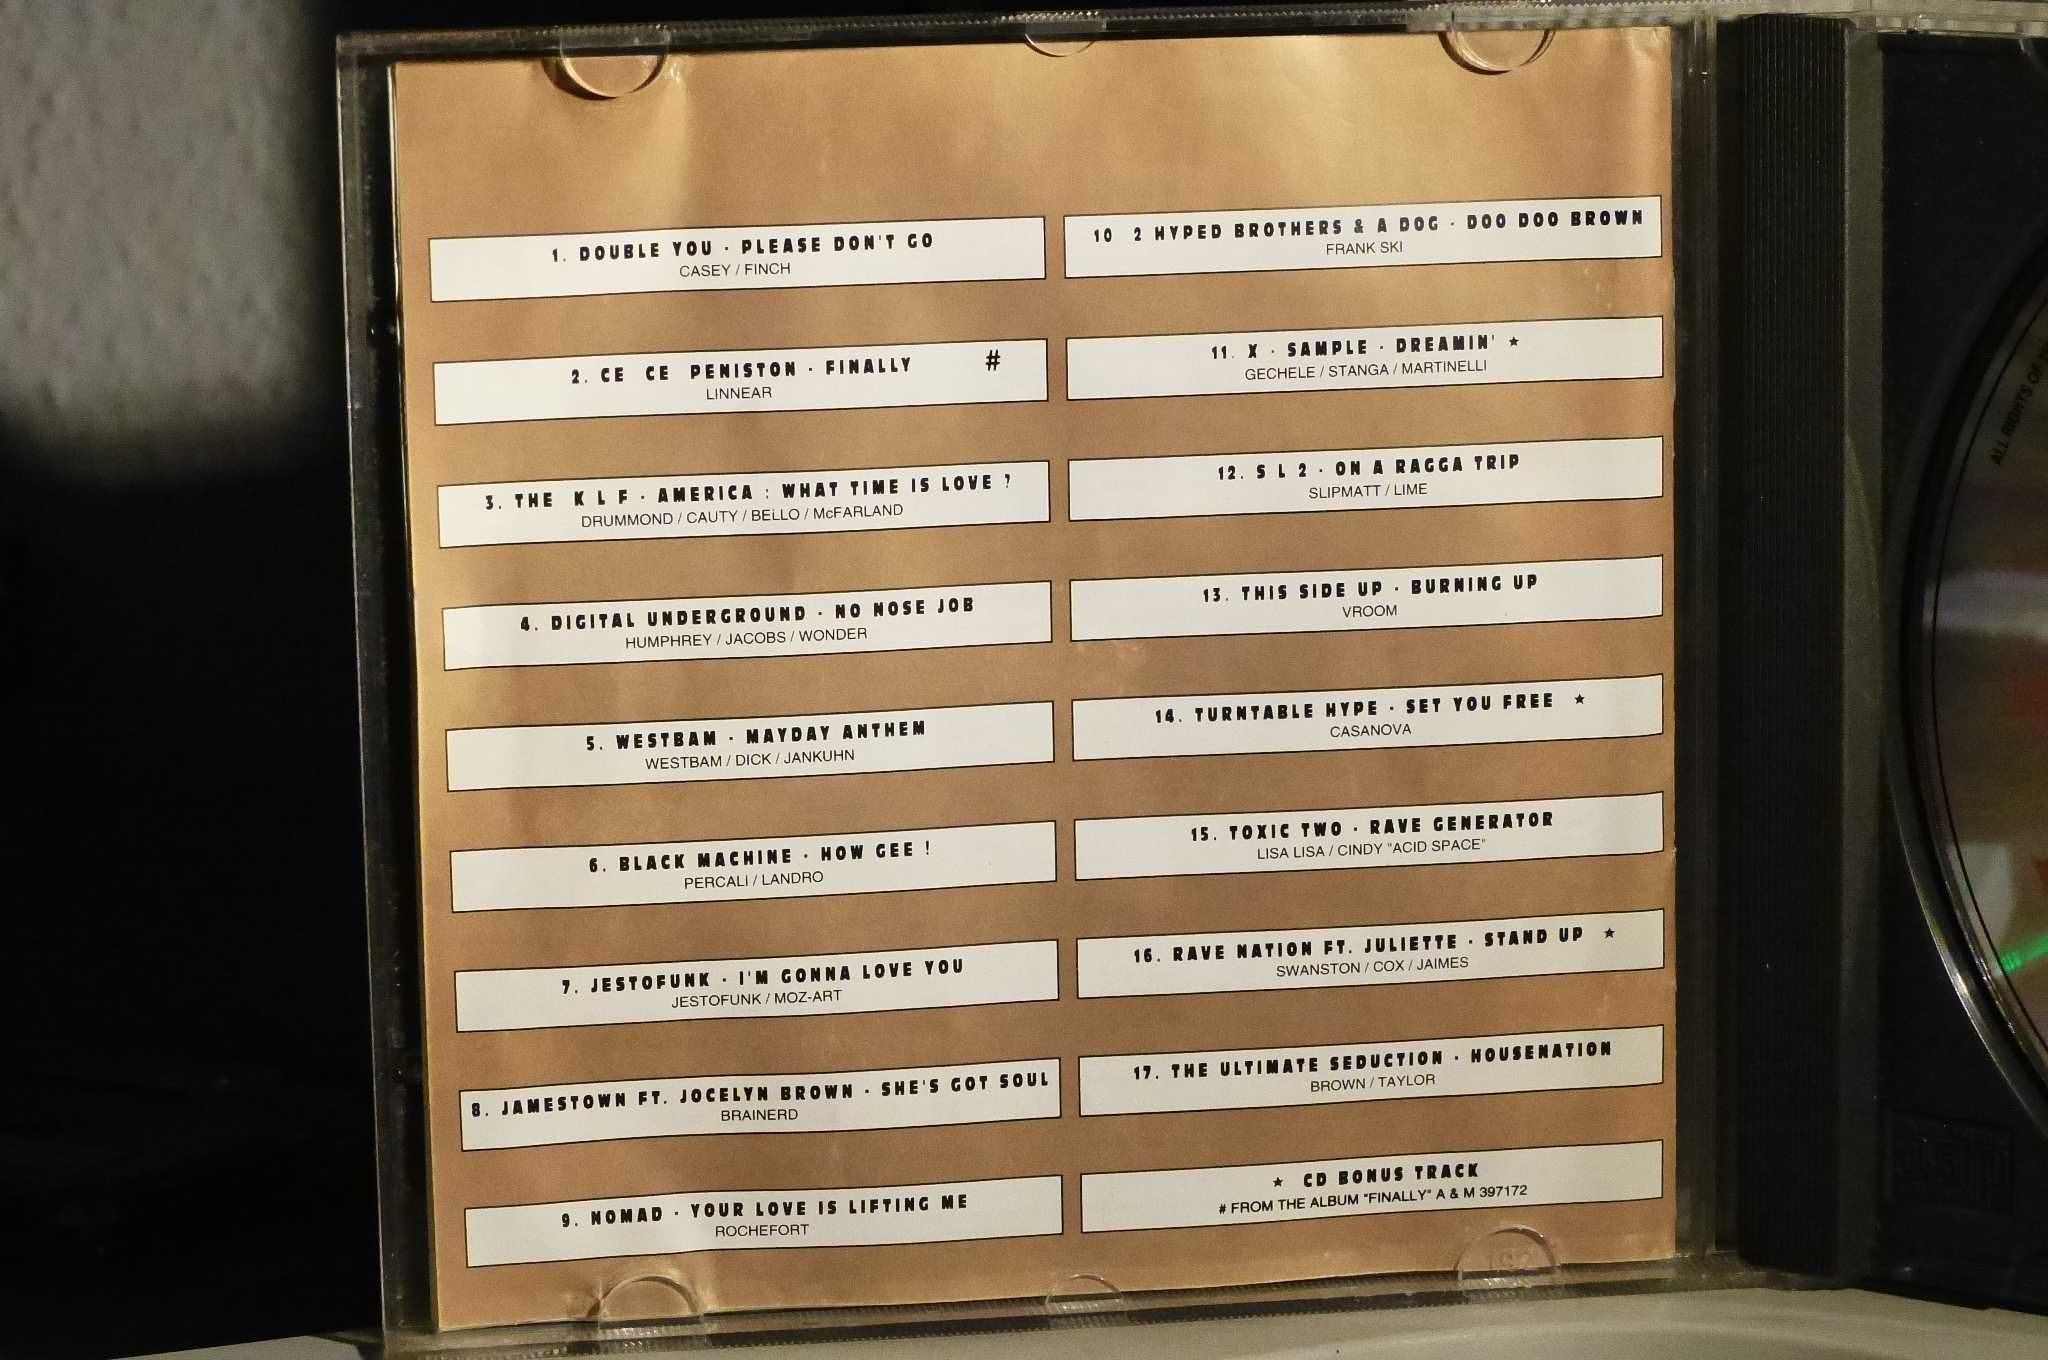 1. DOUBLE YOU · PLEASE DON'T GO
CASEY / FINCH
2. CE CE PENISTON · FINALLY #
LINNEAR
3. THE K L F · AMERICA : WHAT TIME IS LOVE ?
DRUMMOND / CAUTY / BELLO / McFARLAND
4. DIGITAL UNDERGROUND · NO NOSE JOB
HUMPHREY / JACOBS / WONDER
5. WESTBAM · MAYDAY ANTHEM
WESTBAM / DICK / JANKUHN
6. BLACK MACHINE · HOW GEE !
PERCALI / LANDRO
7. JESTOFUNK · I'M GONNA LOVE YOU
JESTOFUNK / MOZ-ART
8. JAMESTOWN FT. JOCELYN BROWN · SHE'S GOT SOUL
BRAINERD
9. NOMAD · YOUR LOVE IS LIFTING ME
ROCHEFORT
10 2 HYPED BROTHERS & A DOG · DOO DOO BROWN
FRANK SKI
11. X · SAMPLE · DREAMIN' ★
GECHELE / STANGA / MARTINELLI
12. S L 2 · ON A RAGGA TRIP
SLIPMATT / LIME
13. THIS SIDE UP · BURNING UP
VROOM
14. TURNTABLE HYPE · SET YOU FREE ★
CASANOVA
15. TOXIC TWO · RAVE GENERATOR
LISA LISA / CINDY "ACID SPACE"
16. RAVE NATION FT. JULIETTE · STAND UP ★
SWANSTON / COX / JAIMES
17. THE ULTIMATE SEDUCTION · HOUSENATION
BROWN / TAYLOR
★ CD BONUS TRACK
# FROM THE ALBUM "FINALLY" A & M 397172
ALL RIGHTS OF